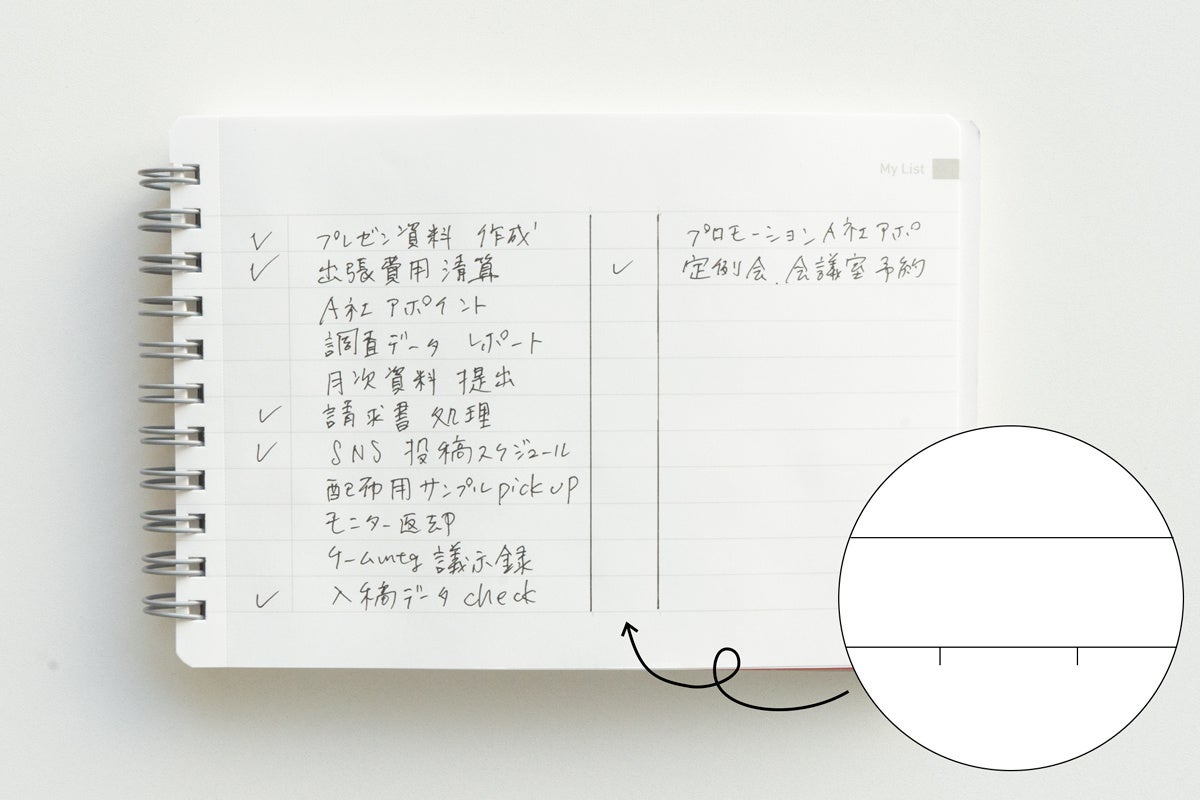 My List
✓ プレゼン資料 作成
✓ 出張費用 清算
A社 アポイント
調査データ レポート
月次資料 提出
✓ 請求書 処理
✓ SNS 投稿スケジュール
配布用サンプル pick up
モニター返却
ゲームmtg 議示録
✓ 入稿データ check
プロモーション A社アポ
✓ 定例会、会議室予約